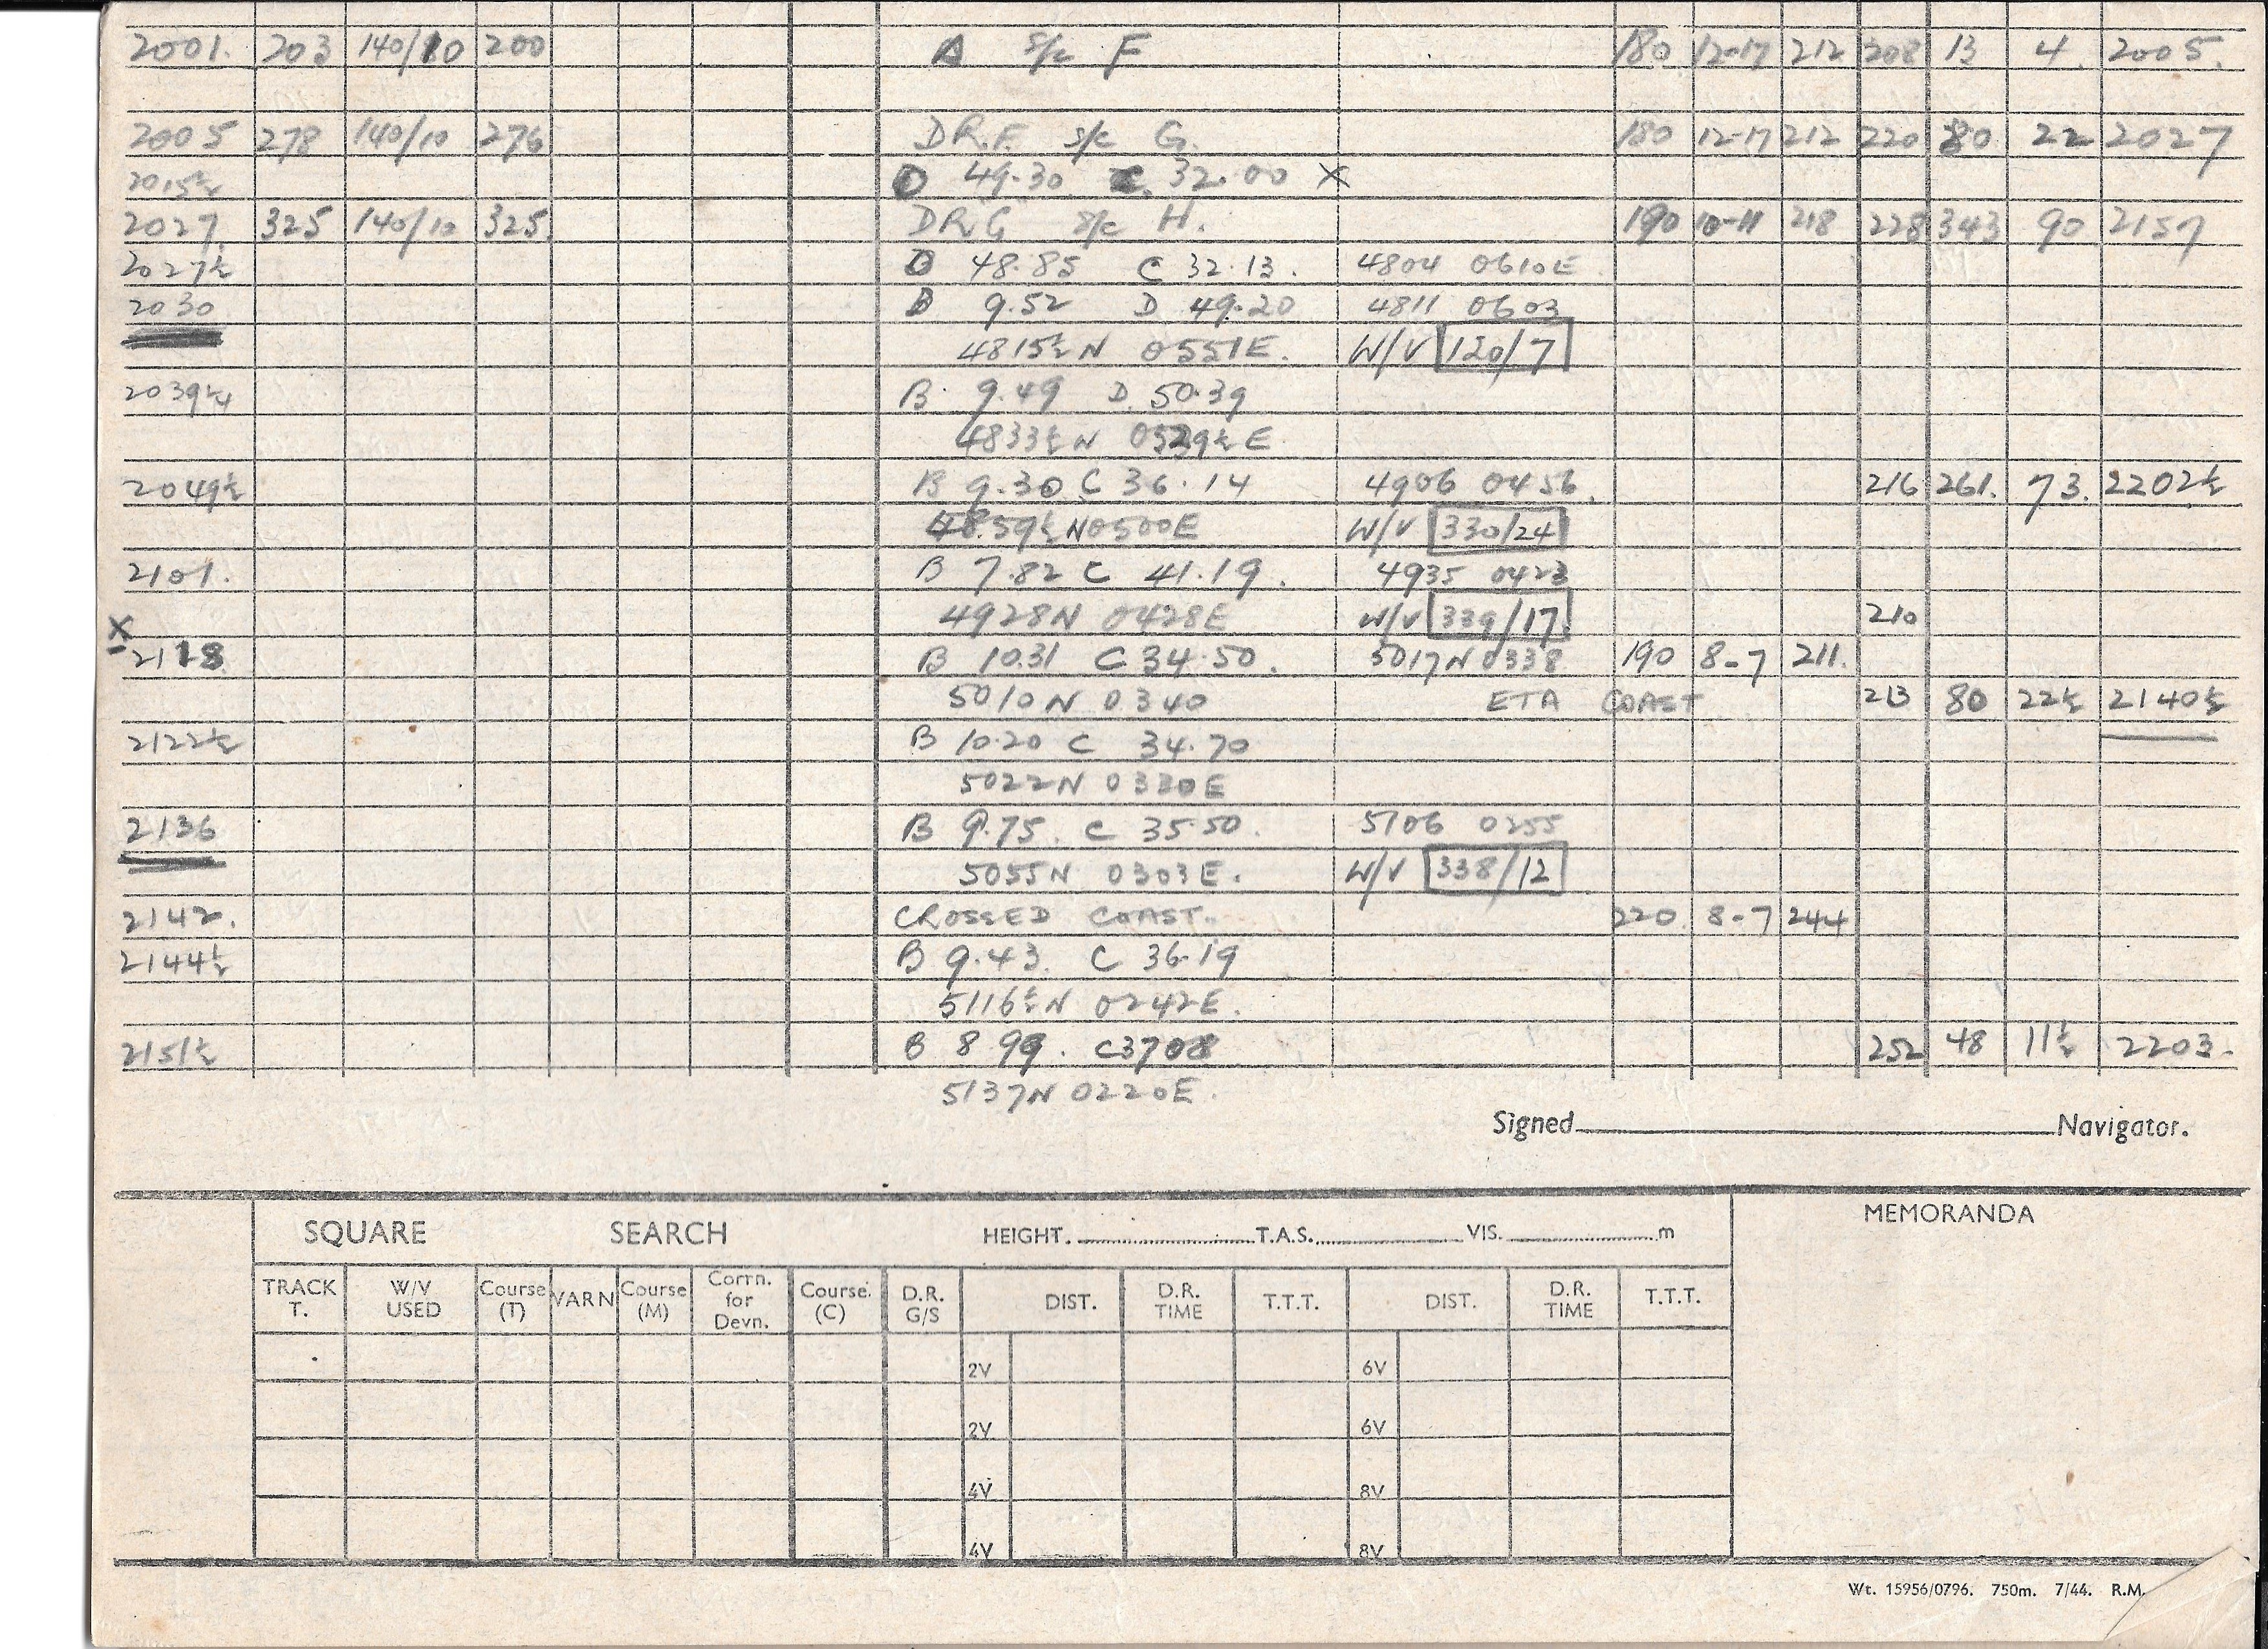 2001. 203 140/10 200 A s/c F 180 12-17 212 208 13 4. 2005.
2005 278 140/10 276 D.R.F. s/c G. 180 12-17 212 220 80 22 2027
2015½ D 49.30 C. 32.00 X
2027 325 140/10 325. DRG s/c H. 190 10-11 218 228 343 90 2157
2027½ D 48.85 C 32.13. 4804 0610E
2030 B 9.52 D 49.20 4811 0603
4815½N 0551E. W/V 120/7
2039¼ B 9.49 D. 50.39
4833½N 0529½E
2049½ B 9.30 C 36.14 4906 0456. 216 261. 73. 2202½
4859½N 0500E W/V 330/24
2101. B 7.82 C 41.19. 4935 0423
4928N 0428E W/V 339/17. 210
X
2118 B 10.31 C 34.50. 5017N 0338 190 8-7 211.
5010N 0340 ETA COAST 213 80 22½ 2140½
2122½ B 10.20 C 34.70
5022N 0330E
2136 B 9.75. C 35.50. 5106 0255
5055N 0303E. W/V 338/12
2142. CROSSED COAST. 220. 8-7 244
2144½ B 9.43. C 36.19
5116½N 0242E.
2151½ B 8 99. C3708 252 48 11½ 2203.
5137N 0220E.
Signed Navigator.
SQUARE SEARCH HEIGHT. T.A.S. VIS. m MEMORANDA
TRACK T. W/V USED Course (T) VARN Course (M) Corrn. for Devn. Course. (C) D.R. G/S DIST. D.R. TIME T.T.T. DIST. D.R. TIME T.T.T.
2V 6V
2V 6V
4V 8V
4V 8V
Wt. 15956/0796. 750m. 7/44. R.M.